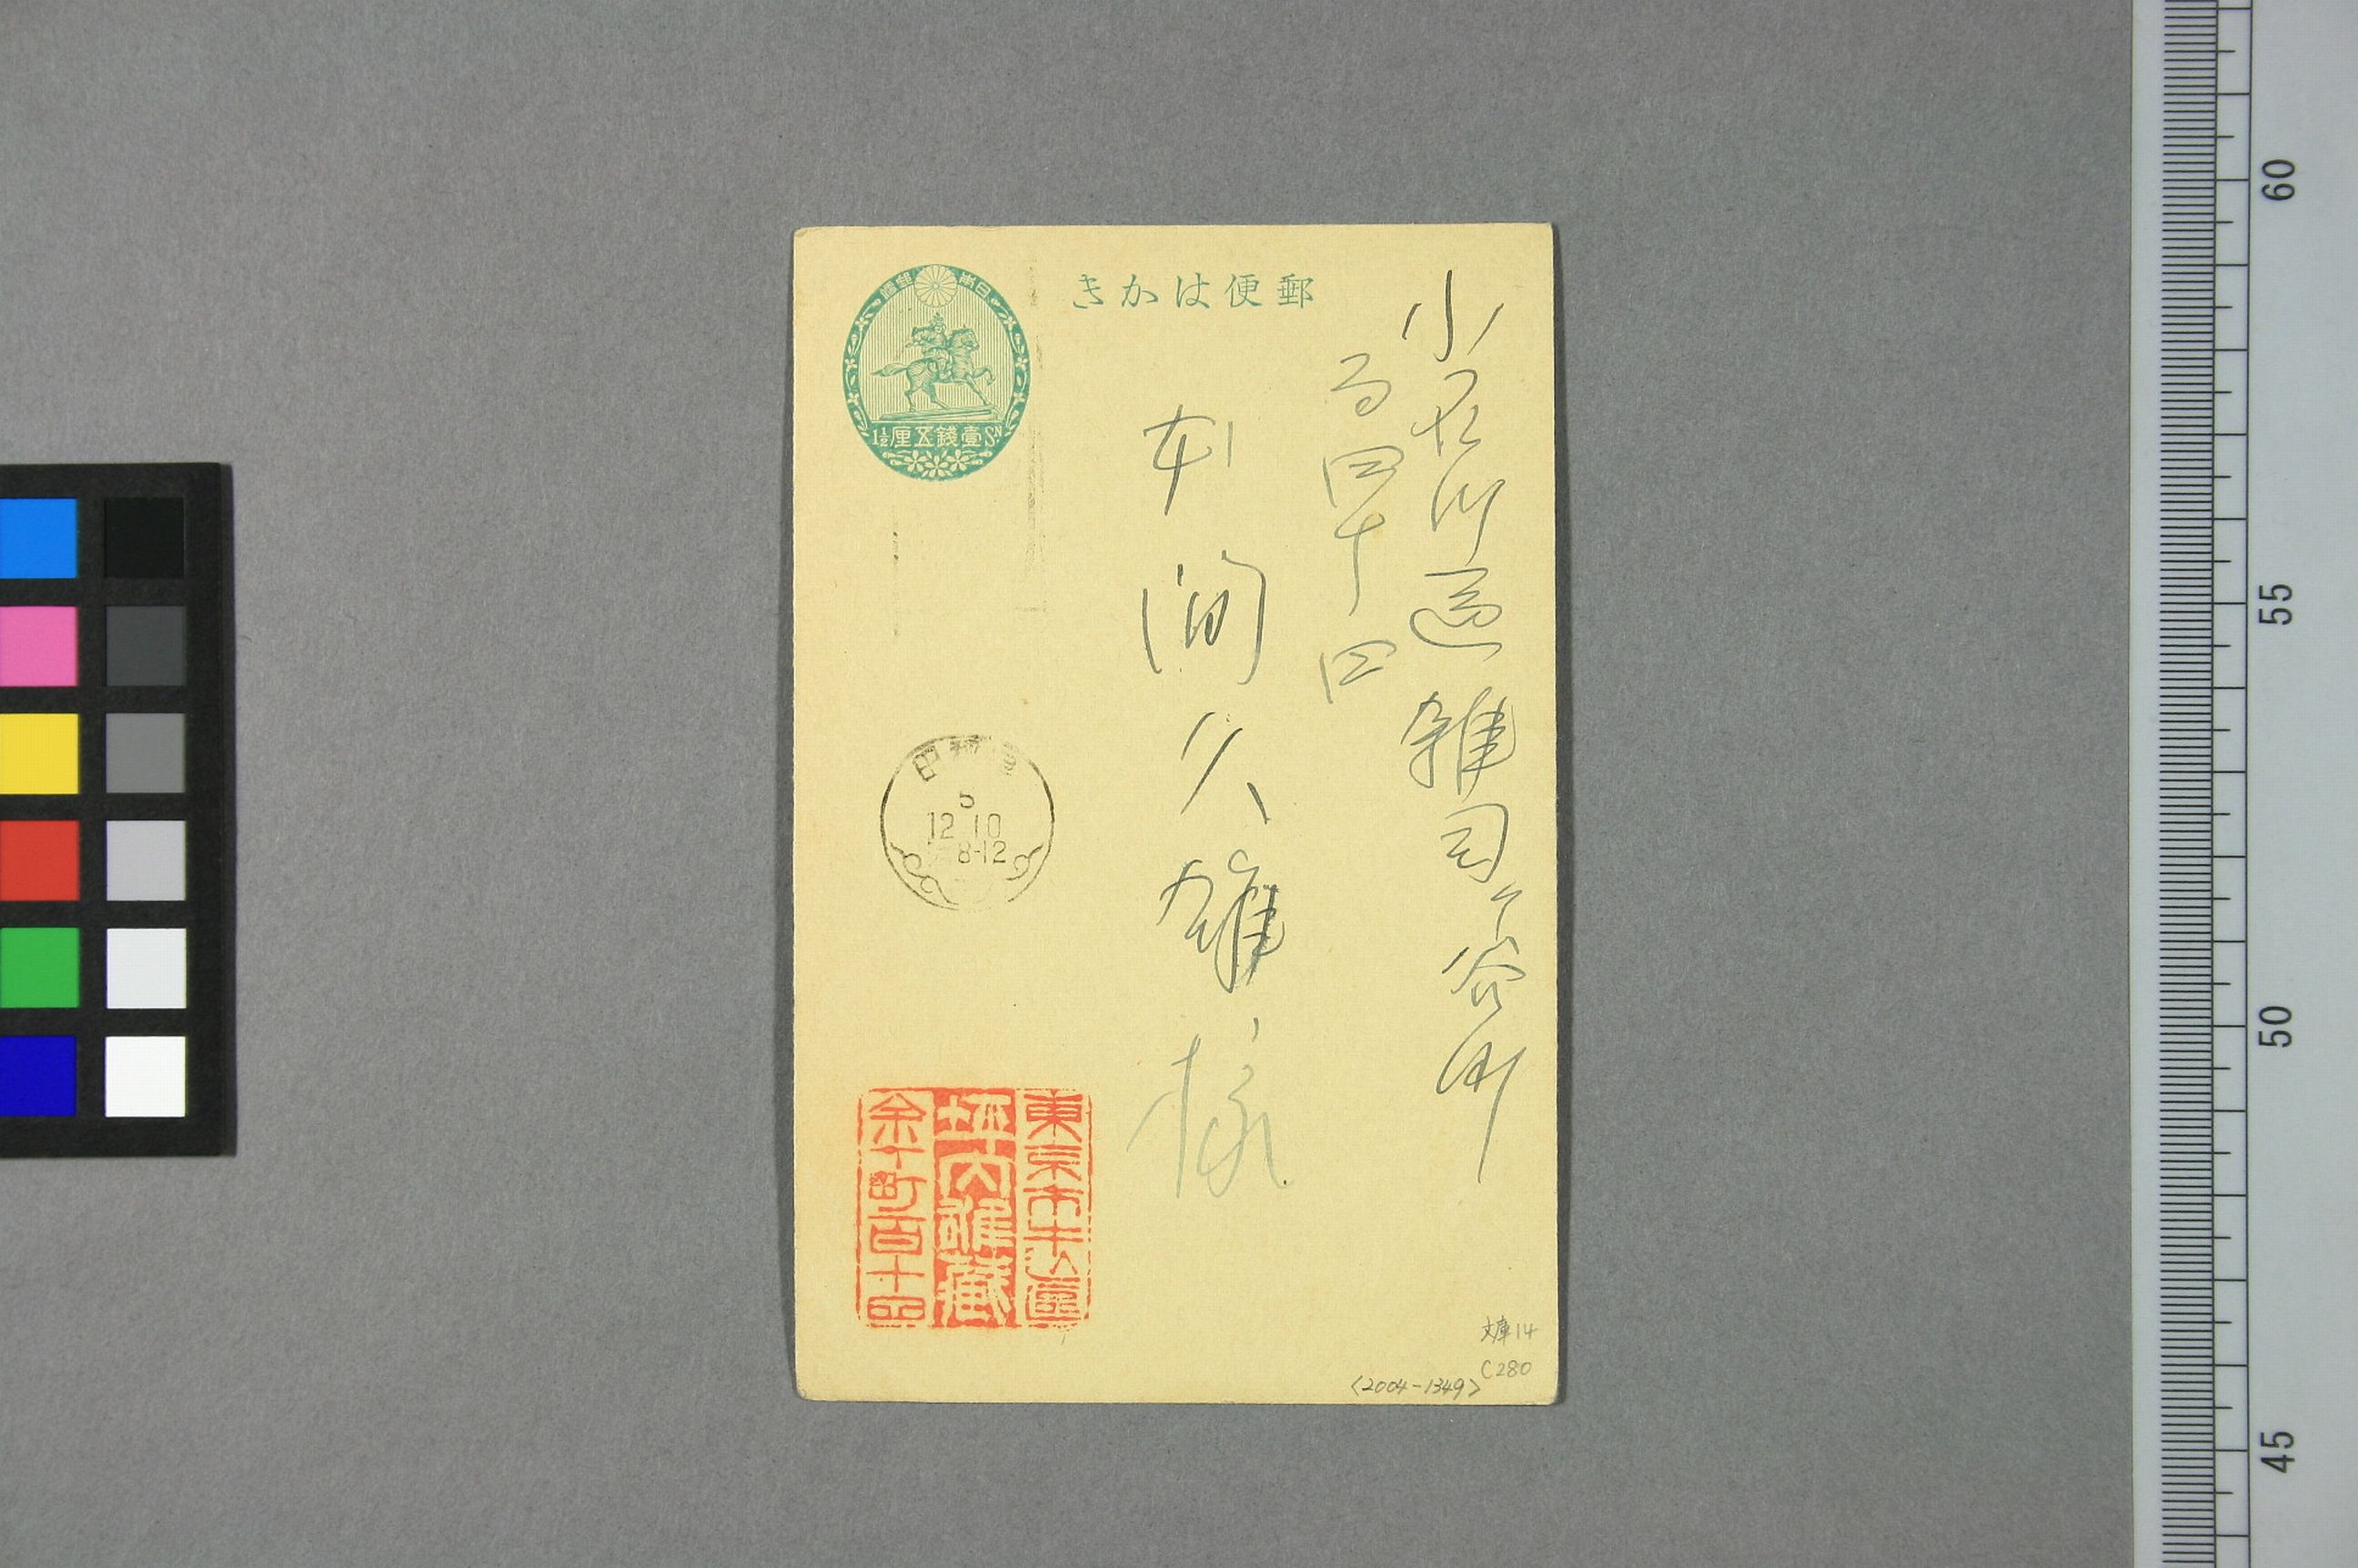 郵便はかき
日本郵便
壹錢五厘
1½ Sɴ
小石川区雑司ヶ谷町
百四十四
本間久雄様
5
12 10
8-12
東京市牛込區
坪内雄藏
余丁町百十四
文庫14
C280
<2004-1349>
60
55
50
45